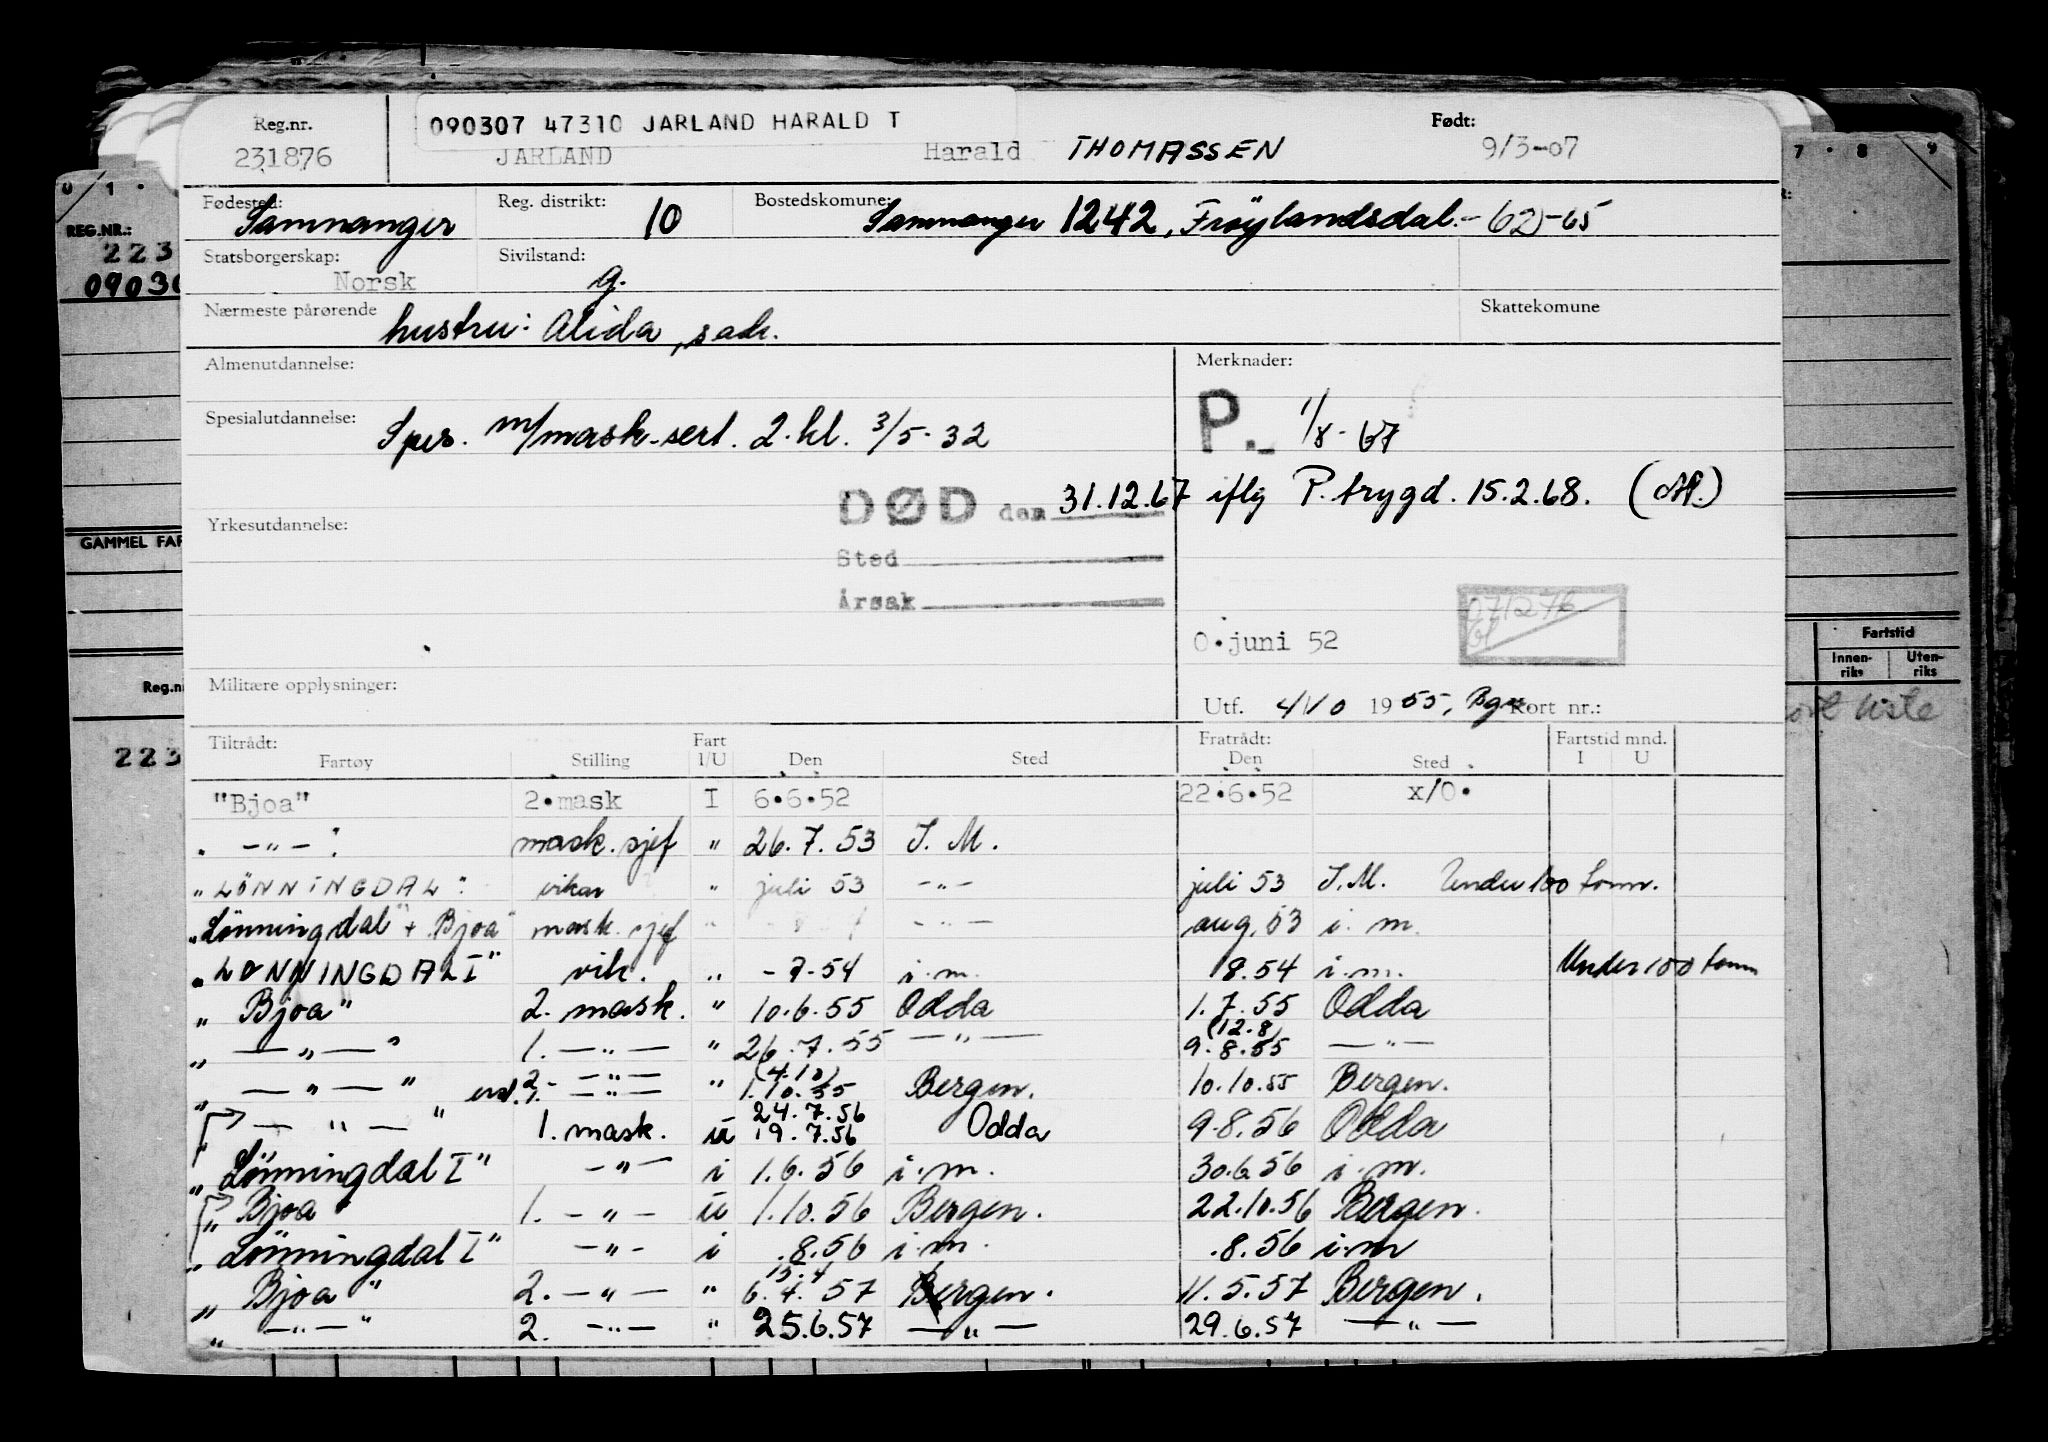 090307 47310 JARLAND HARALD T
Reg.nr. 231876 JARLAND Harald THOMASSEN Født: 9/3-07
Fødested: Samnanger Reg. distrikt: 10 Bostedskomune: Samnanger 1242, Frøylandsdal.- 62-65
Statsborgerskap: Norsk Sivilstand: g.
Nærmeste pårørende hustru: Alida, sadr. Skattekomune
Almenutdannelse: Merknader:
Spesialutdannelse: m/mask-sert. 2.kl. 3/5-32 P. 1/8-67
DØD den 31.12.67 iflg P.trygd. 15.2.68.
Yrkesutdannelse:
Sted
Årsak
071276
0.juni 52
Militære opplysninger:
Utf. 4/10 1955, Bgn. Kort nr.:
Tiltrådt: Fartøy Stilling Fart I/U Den Sted Fratrådt: Den Sted Fartstid mnd. I U
"Bjoa" 2.mask I 6.6.52 22.6.52 x/0.
- " - mask.sjef " 26.7.53 I.M.
"LÖNNINGDAL" vikar " juli 53 -"- juli 53 I.M. Under 100 tonn.
"Lönningdal" + "Bjoa" mask.sjef " -"- aug.53 i.m.
"LØNNINGDAL I" vik. " -7-54 i.m. 8.54 i.m. Under 100 tonn
"Bjoa" 2. mask. " 10.6.55 Odda 1.7.55 Odda
" — " — " 1. — " — " 26.7.55 — " — (12.8) 9.8.55 — " —
" — " — " 2. — " — " (4.10) 1.10.55 Bergen. 10.10.55 Bergen.
1. — " —
— " — " 1. mask. u 24.7.56 19.7.56 Odda 9.8.56 Odda
"Lönningdal I" -"- i 1.6.56 i.m. 30.6.56 i.m.
"Bjoa 1. - " - u 1.10.56 Bergen. 22.10.56 Bergen.
"Lönningdal I" -"- i .8.56 i.m. .8.56 i.m
"Bjoa" 2. - " - " 15.4 6.4.57 Bergen. 11.5.57 Bergen.
" — " — " 2. - " - " 25.6.57 — " — 29.6.57 — " —
REG.NR.:
223
0903
GAMMEL FAR
Reg.n
223
0 1
7 8 9
Fartstid
Innen-riks Uten-riks
liste